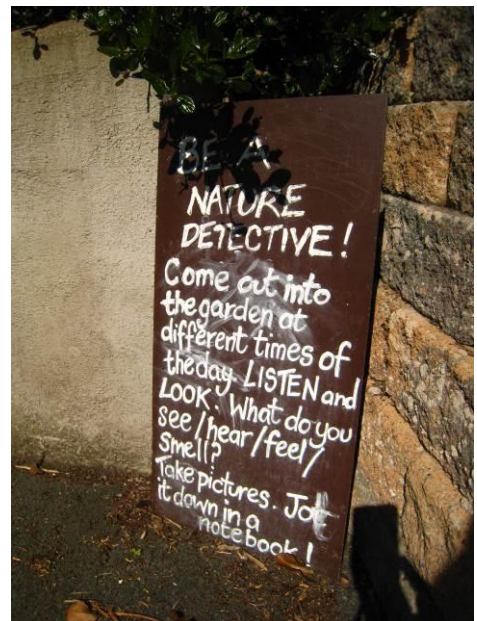 BE A
NATURE
DETECTIVE!
Come out into
the garden at
different times of
the day. LISTEN and
LOOK. What do you
see/hear/feel/
smell?
Take pictures. Jot
it down in a
notebook!